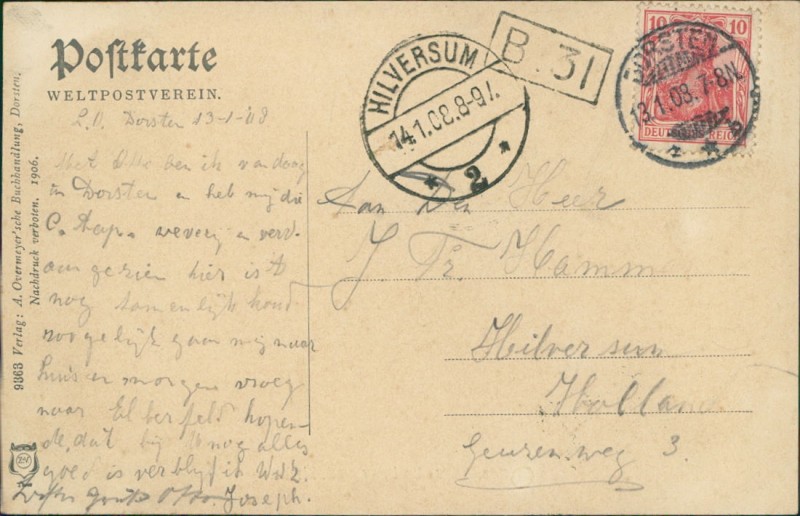 Postkarte
WELTPOSTVEREIN.
Dorsten 13-1-08
Met Otto ben ik vandaag
in Dorsten en heb mij die
wevery en verv-
aangezien hier is t
nog tamenlijk koud
zoo gelijk gaan mij naar
huis en morgen vroeg
naar Elberfeld hopen-
de, dat bij U nog alles
goed is verblijf ik
Otto, Joseph.
HILVERSUM
14.1.08.8-9V.
2
B. 31
10 10
DEUTSCHES REICH
DORSTEN
13.1.08.7-8N.
Aan Den Heer
J Fr. Hamm
Hilversum
Holland
Geuzenweg 3.
9363 Verlag: A. Overmeyer'sche Buchhandlung, Dorsten,
Nachdruck verboten. 1906.